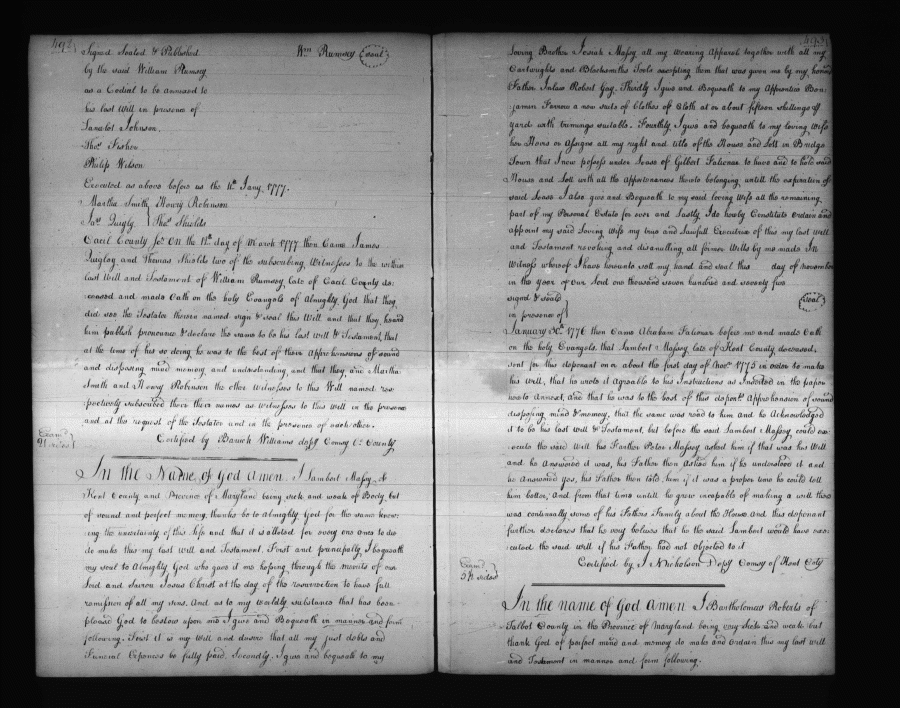 492
Signed Sealed & Published Wm Rumsey seal
by the said William Rumsey
as a Codicil to be annexed to
his last Will in presence of
Johnson.
Thos. Fisher
Philip Wilson
Executed as above before us the 12th Jany. 1777.
Martha Smith, Henry Robinson
Jas. Quigly. Thos. Shields
Cecil County on the day of March 1777 then Came James
Quigley and Thomas Shields two of the subscribing Witnesses to the within
last Will and Testament of William Rumsey, late of Cecil County de=
ceased and made Oath on the holy Evangels of Almighty God that they
did see the Testator therein named sign & seal this Will and that they heard
him publish pronounce & declare the same to be his last will & Testament, that
at the time of his so doing he was to the best of their Apprehensions of sound
and disposing mind memory, and understanding, and that they, and Martha
Smith and Henry Robinson the other Witnesses to this Will named res
pectively subscribed their names as witnesses to this will in the presence
and at the request of the Testator and in the presence of each other.
Certified by Baruch Williams depy Comsy Cl. County
Examd
91 sides
In the Name of God Amen I Lambert Massy of
Kent County and Province of Maryland being sick and weak of Body but
of sound and perfect memory, thanks be to Almighty God for the same know=
ing the uncertainty of this Life and that it is alloted for every one once to die
do make this my last will and Testament, First and principally I bequeath
my soul to Almighty God who gave it me hoping through the merits of our
Lord and Savior Jesus Christ at the day of the resurrection to have full
remission of all my sins. And as to my worldly substance that has been
pleased God to bestow upon me I give and Bequeath in manner and form
following. First it is my Will and desire that all my just debts and
Funeral Expences be fully paid, Secondly, I give and bequeath to my
493
loving Brother Josiah Massy all my wearing Apparel together with all my
Cartwrights and Blacksmiths Tools excepting them that was given me by my honored
Father Inlaw Robert Gay. Thirdly I give and Bequeath to my Apprentice Ben=
jamin Farrow a new suit of Clothes of Cloth at or about fifteen shillings
yard with trimings suitable. Fourthly I give and bequeath to my loving Wife
her Heirs or Assigns all my right and title of the House and Lott in Bridge
Town that I now possess under Lease of Gilbert Falconar to have and to hold said
House and Lott with all the Appertenances thereto belonging untill the expiration of
said Lease I also give and Bequeath to my said loving Wife all the remaining
part of my Personal Estate for ever and Lastly I do hereby Constitute Ordain and
appoint my said loving Wife my true and lawfull Executrix of this my last will
and Testament revoking and disanulling all former Wills by me made In
Witness whereof I have hereunto sett my hand and seal this day of November
in the year of our Lord one thousand seven hundred and seventy five
signed & seald seal
in presence of
January 30th 1776 then Came Abraham Falconar before me and made Oath
on the holy Evangels, that Lambert Massey late of Kent County, deceased,
sent for this deponent on or about the first day of Novr. 1775 in order to make
his will, that he wrote it Agreeable to his Instructions as Inserted in the paper
hereto Annext, and that he was to the best of this depont. Apprehension of sound
disposing mind & memory, that the same was read to him and he Acknowledged
it to be his last will & Testament, but before the said Lambert Massey could ex=
ecute the said Will his Father Peter Massey asked him if that was his Will
and he Answered it was, his Father then Asked him if he understood it and
he Answered yes, his Father then told him if it was a proper time he could tell
him better, And from that time untill he grew incapable of making a will there
was continually some of his Fathers Family about the House, And this deponant
further declares that he very believes that he the said Lambert would have exe=
cuted the said will if his Father had not objected to it
Certified by J Nicholson Depy Comsy of Kent Cnty
Examd
sides
In the name of God Amen I Bartholomew Roberts of
Talbot County in the Province of Maryland being very sick and weak but
thank God of perfect mind and memory do make and ordain this my last will
and Testament in manner and form following.